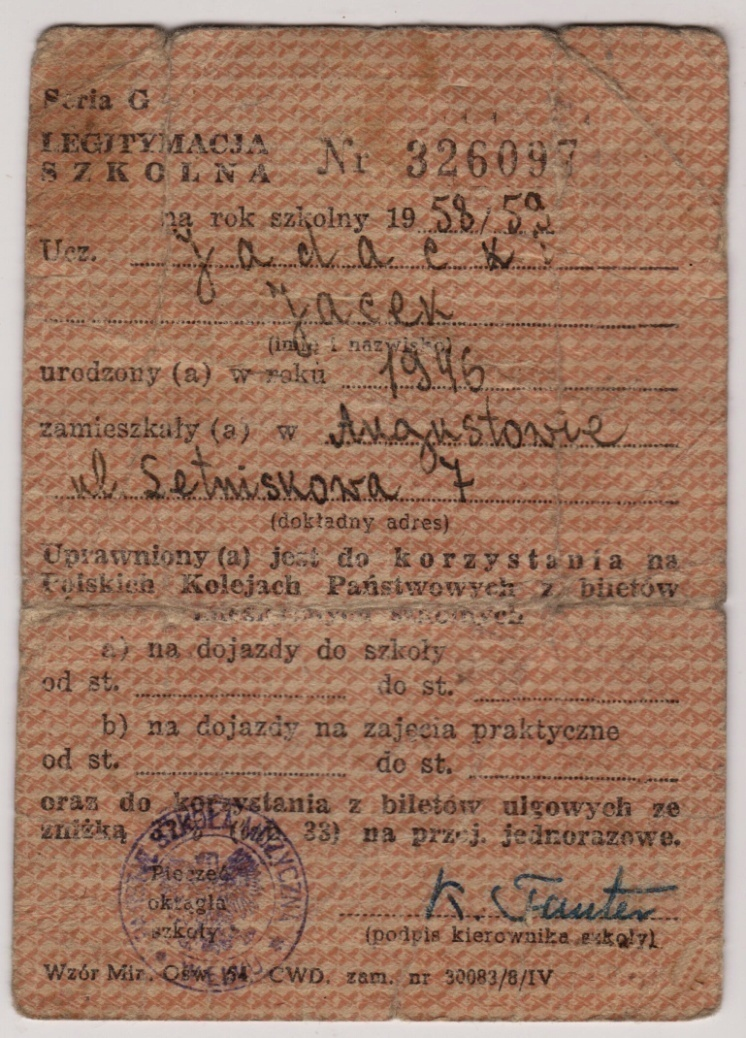 Seria G
LEGITYMACJA
SZKOLNA Nr 326097
na rok szkolny 1958/59
Ucz. Jadacki
Jacek
(imię i nazwisko)
urodzony (a) w roku 1946
zamieszkały (a) w Augustowie
ul. Letniskowa 7
(dokładny adres)
Uprawniony (a) jest do korzystania na
Polskich Kolejach Państwowych z biletów
a) na dojazdy do szkoły
od st. do st.
b) na dojazdy na zajęcia praktyczne
od st. do st.
oraz do korzystania z biletów ulgowych ze
zniżką 33) na przej. jednorazowe.
SZKOŁA MUZYCZNA
Pieczęć
okrągła
szkoły
K.
(podpis kierownika szkoły)
Wzór Min. Ośw. 54. CWD. zam. nr 30083/8/IV